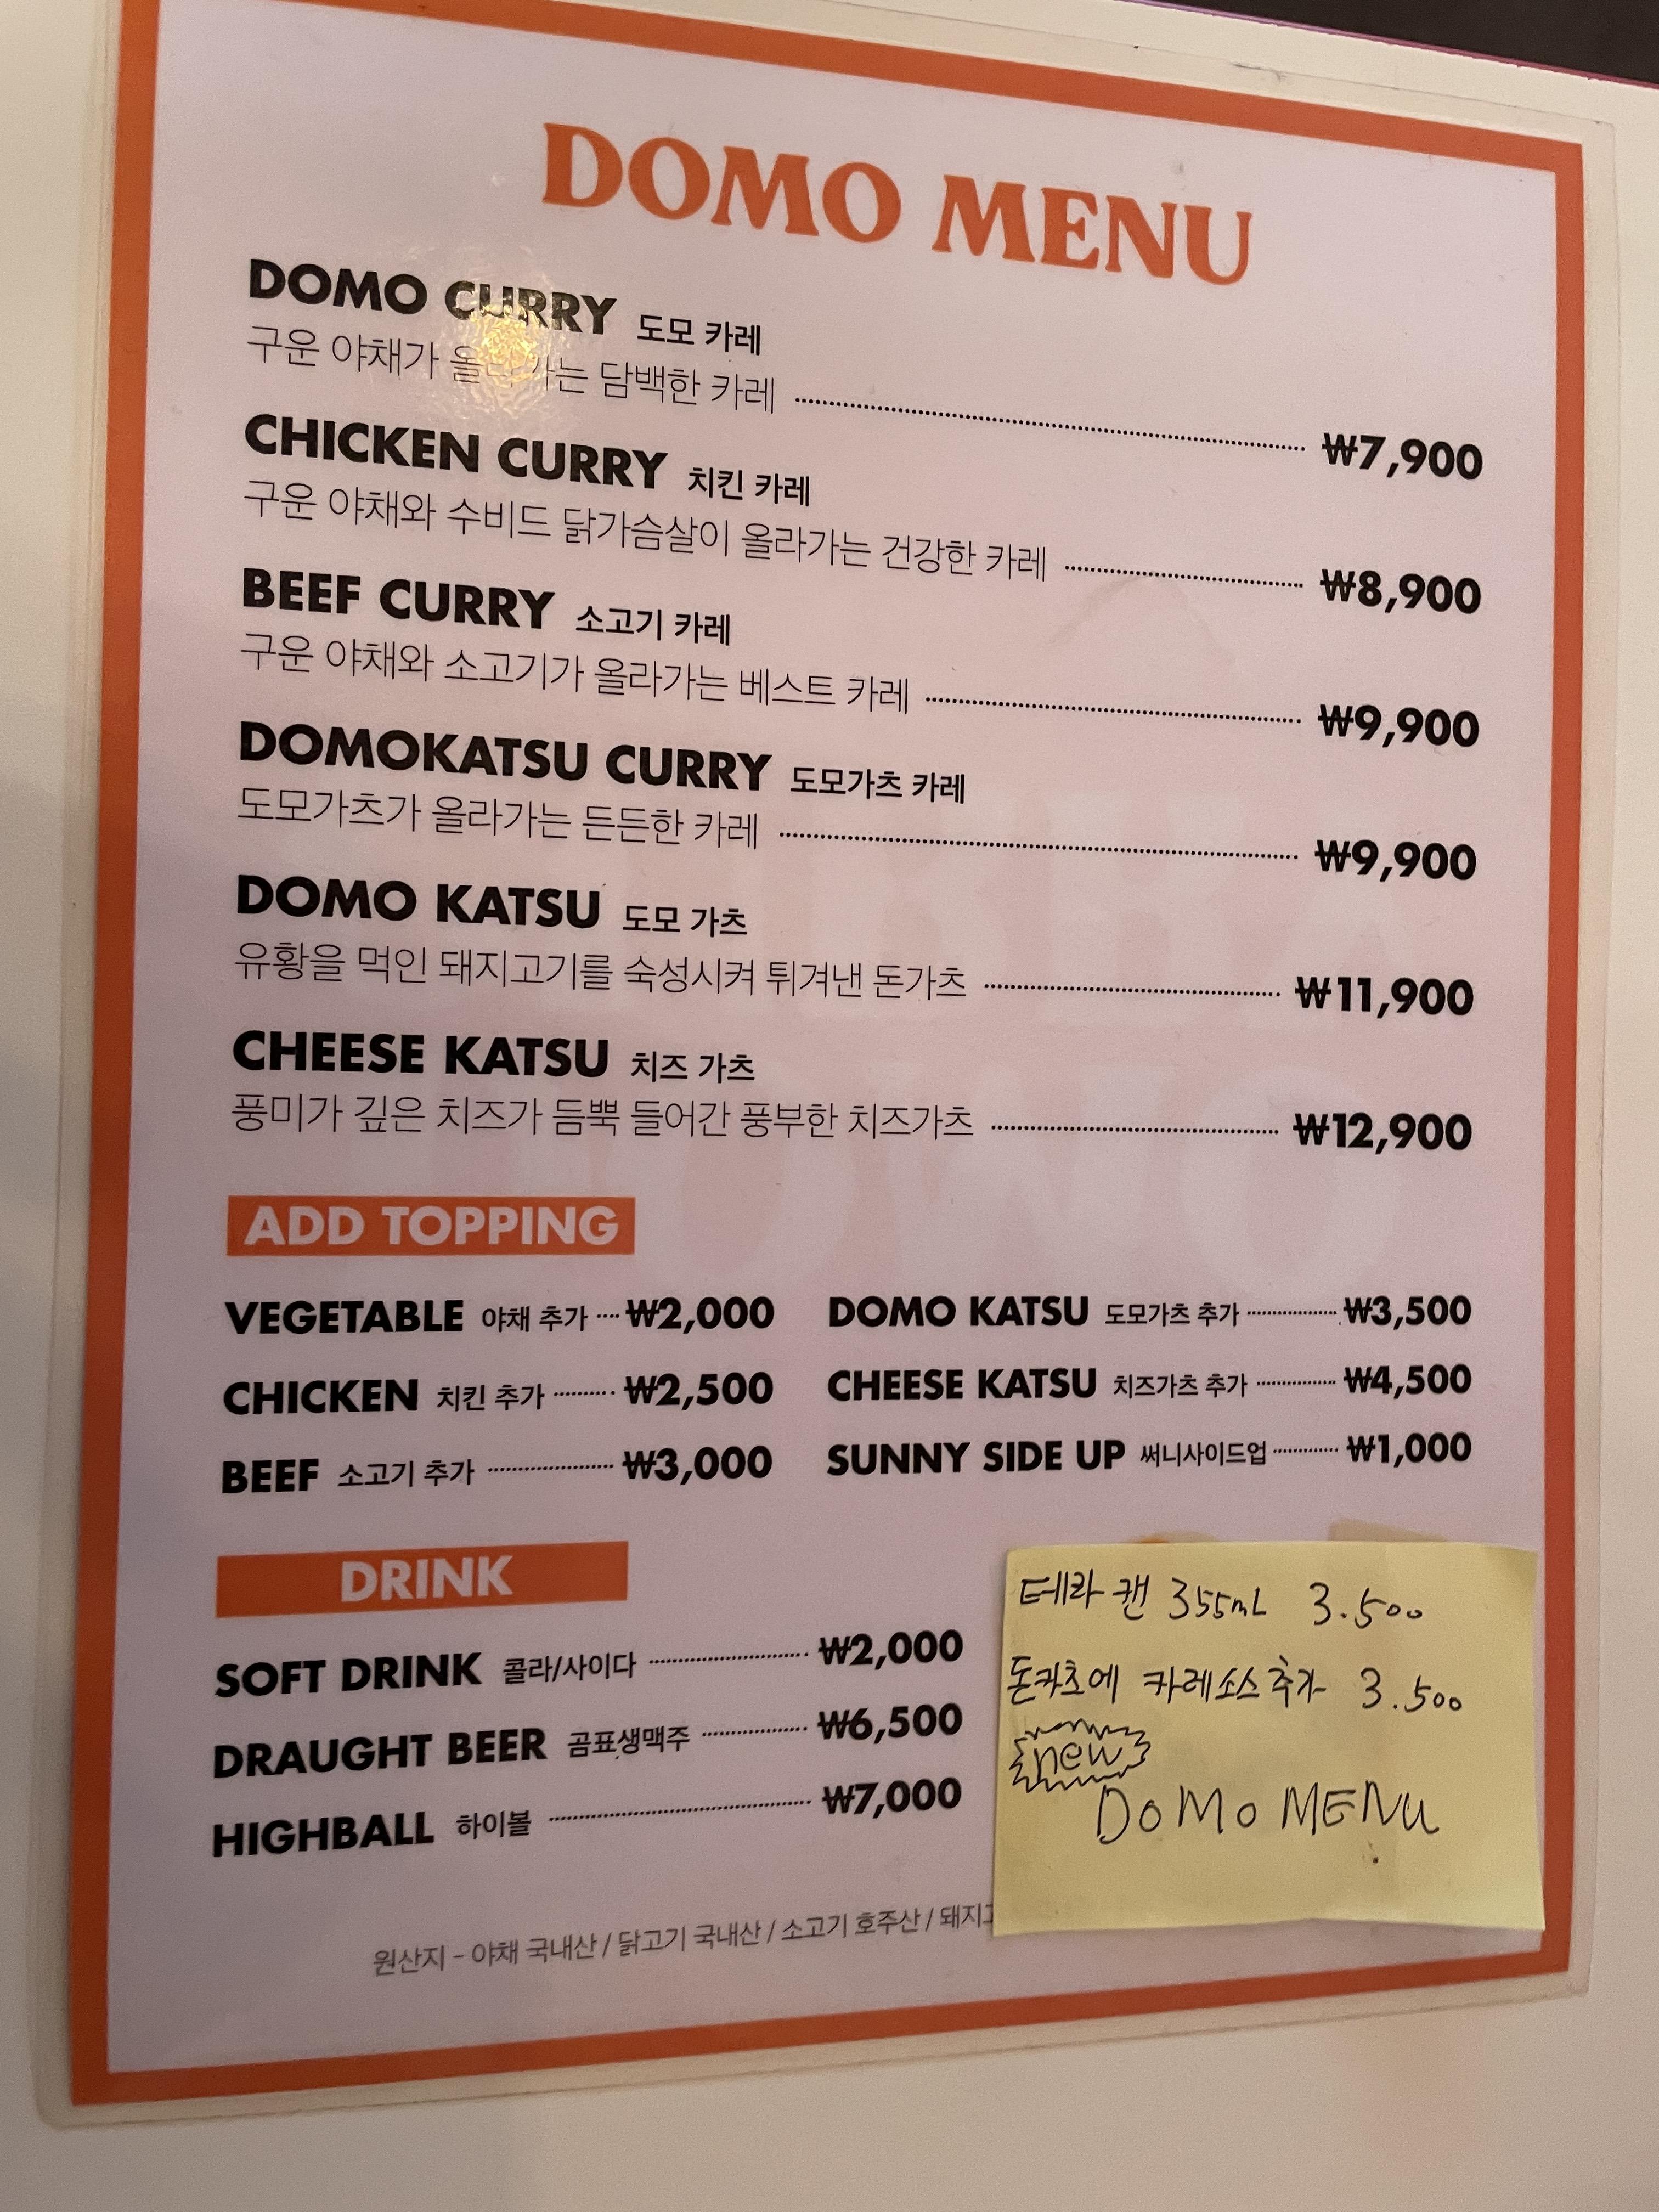 DOMO MENU
DOMO CURRY 도모 카레
구운 야채가 담백한 카레 ₩7,900
CHICKEN CURRY 치킨 카레
구운 야채와 수비드 닭가슴살이 올라가는 건강한 카레 ₩8,900
BEEF CURRY 소고기 카레
구운 야채와 소고기가 올라가는 베스트 카레 ₩9,900
DOMOKATSU CURRY 도모가츠 카레
도모가츠가 올라가는 든든한 카레 ₩9,900
DOMO KATSU 도모 가츠
유황을 먹인 돼지고기를 숙성시켜 튀겨낸 돈가츠 ₩11,900
CHEESE KATSU 치즈 가츠
풍미가 깊은 치즈가 듬뿍 들어간 풍부한 치즈가츠 ₩12,900
ADD TOPPING
VEGETABLE 야채 추가 ₩2,000
CHICKEN 치킨 추가 ₩2,500
BEEF 소고기 추가 ₩3,000
DOMO KATSU 도모가츠 추가 ₩3,500
CHEESE KATSU 치즈가츠 추가 ₩4,500
SUNNY SIDE UP 써니사이드업 ₩1,000
DRINK
SOFT DRINK 콜라/사이다 ₩2,000
DRAUGHT BEER 곰표생맥주 ₩6,500
HIGHBALL 하이볼 ₩7,000
테라 캔 355mL 3.500
돈카츠에 카레소스 추가 3.500
new
DOMO MENU
원산지 - 야채 국내산 / 닭고기 국내산 / 소고기 호주산 /